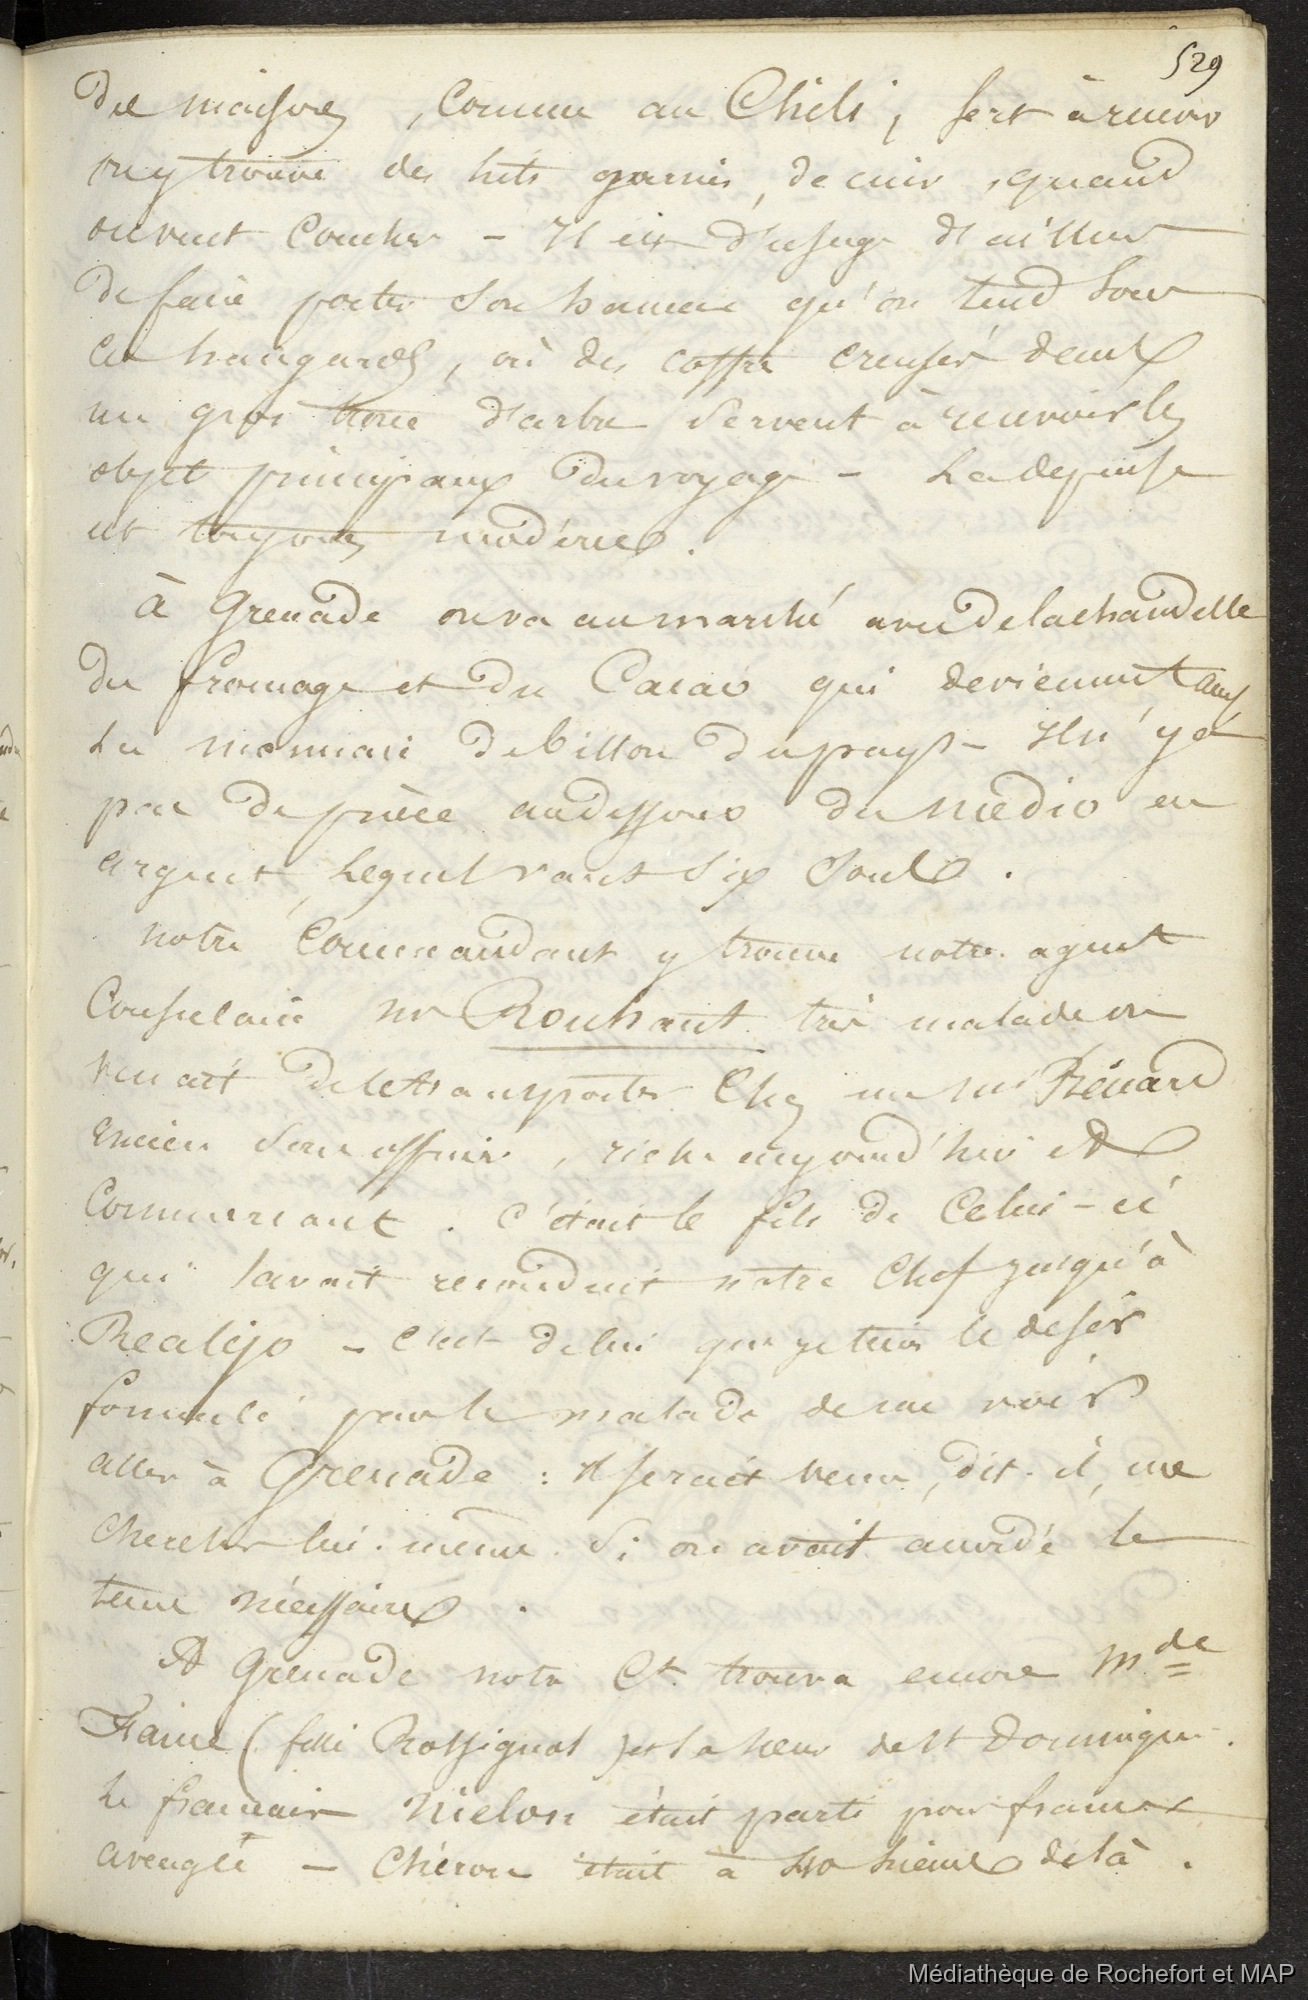 529
des maisons, comme au Chili, sert à recevoir
on y trouve des lits garnis, de cuir, quand
on veut coucher - Il est d'usage d'ailleurs
de faire porter son hamac qu'on tend sous
ces hangards, où des coffres creusés dans
un gros tronc d'arbre servent à recevoir les
objets principaux du voyage - La dépense
est toujours modérée.
à Grenade on va au marché avec de la chandelle
du fromage et du Cacao qui deviennent ainsi
La monnaie de billon du pays - Il n'y a
pas de pièce au dessous du medio en
argent, lequel vaut six sous.
notre Commandant y trouva notre agent
Consulaire Mr Rouhaut très malade on
venait de le transporter chez un Mr Bénard
ancien sous officier, riche aujourd'hui et
Commerçant. c'était le fils de Celui-ci
qui avait reconduit notre Chef jusqu'à
Realejo - c'est de lui que je tiens le desir
formulé par le malade de me voir
aller à Grenade : il serait venu, dit-il, me
chercher lui-même si on avait accordé le
tems nécessaire.
A Grenade notre Ct trouva encore Mde
(fille Rossignol) et la sœur de St Domingue.
Le français Nielon était parti pour france
aveugle - Chéron était à 40 lieues de là.
Médiathèque de Rochefort et MAP